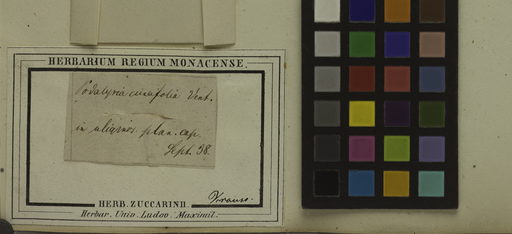 HERBARIUM REGIUM MONACENSE.
Podalyria cuneifolia Vent.
in uliginos. plan. cap.
Sept. 38.
Krauss.
HERB. ZUCCARINII.
Herbar. Univ. Ludov. Maximil.